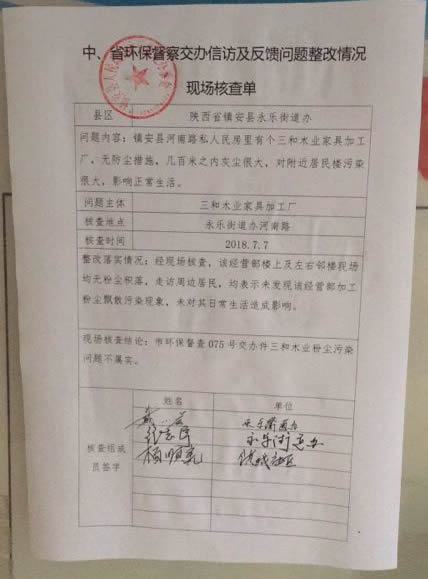 中、省环保督察交办信访及反馈问题整改情况
现场核查单
县区 陕西省镇安县永乐街道办
问题内容：镇安县河南路私人民房里有个三和木业家具加工
厂，无防尘措施，几百米之内灰尘很大，对附近居民楼污染
很大，影响正常生活。
问题主体 三和木业家具加工厂
核查地点 永乐街道办河南路
核查时间 2018.7.7
整改落实情况：经现场核查，该经营部楼上及左右邻楼现场
均无粉尘积落，走访周边居民，均表示未发现该经营部加工
粉尘飘散污染现象，未对其日常生活造成影响。
现场核查结论：市环保督查075号交办件三和木业粉尘污染
问题不属实。
姓名 单位
永乐街道办
核查组成
员签字